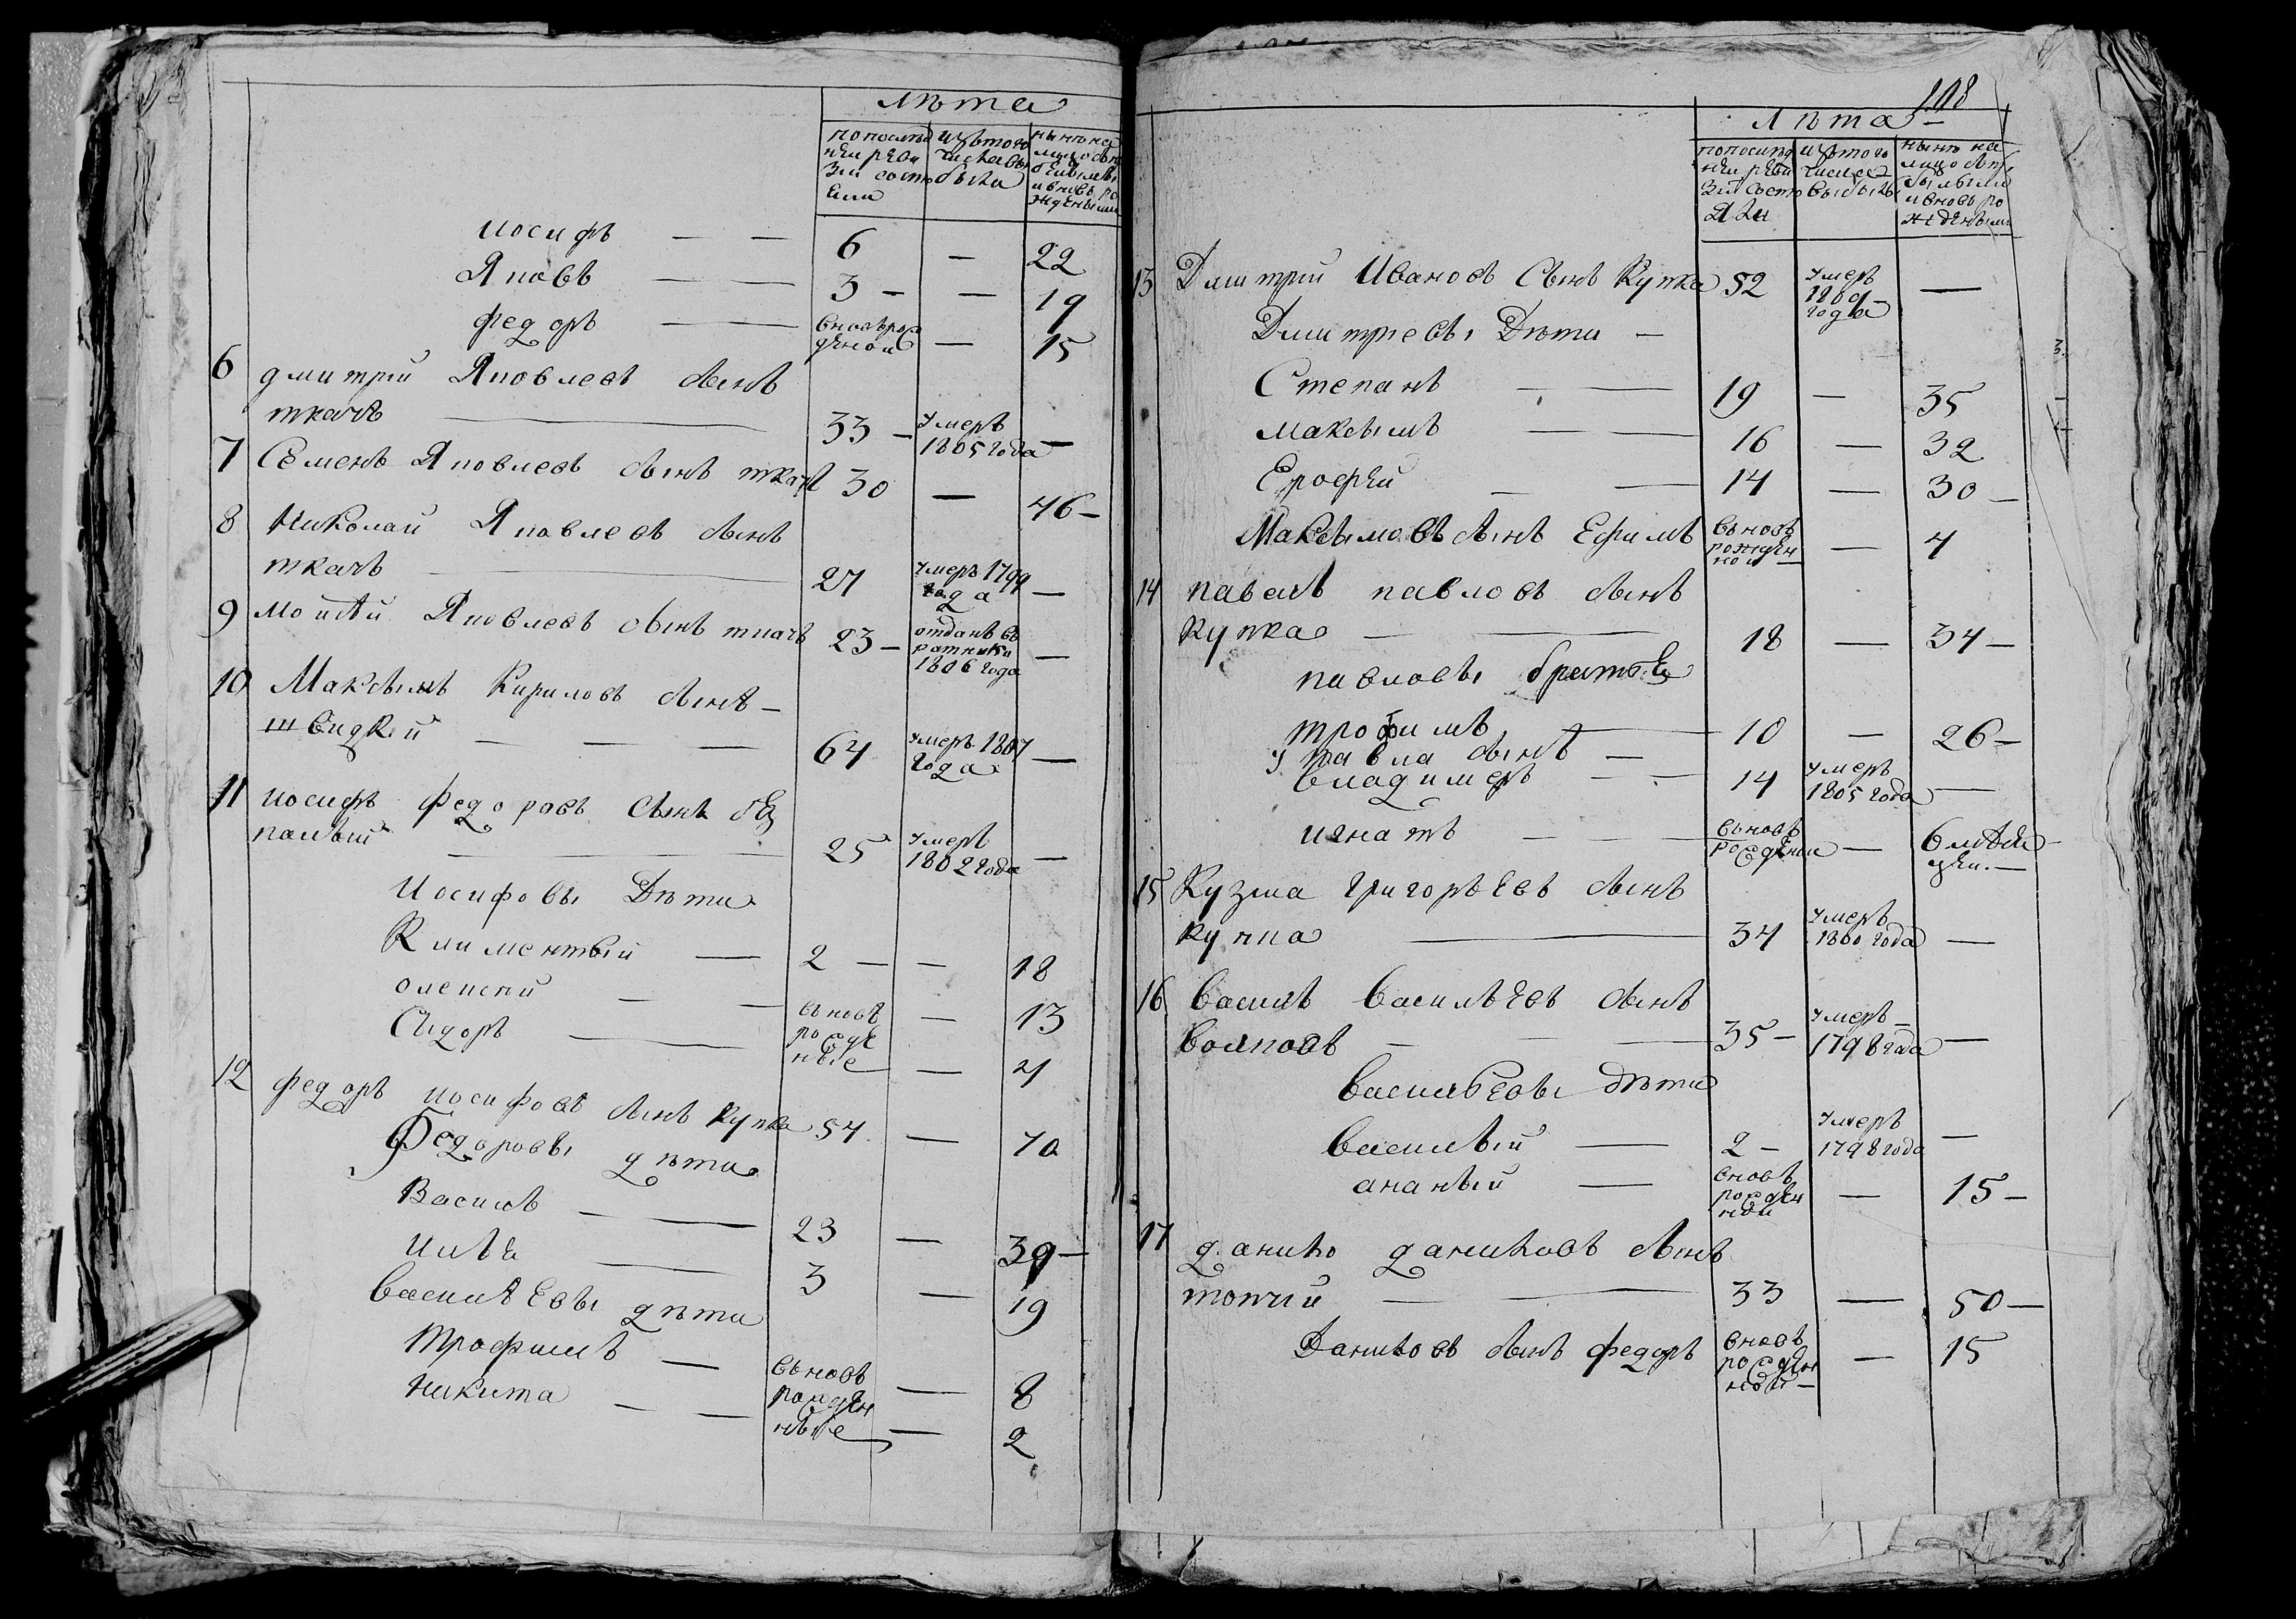 Лѣта
по послѣд изътого нынѣ на
ней реви числа вы лицо съ
зіи состо было
яли и вновь ро
жденными
Иосифъ — — 6 — 22
Яковъ — — 3 — — 19
Федоръ — вновь рож
денои — 15
6 Дмитрій Яковлевъ сынъ
ткачъ — 33 — умеръ
1805 года —
7 Семенъ Яковлевъ сынъ ткачъ 30 — 46 —
8 Николай Яковлевъ сынъ
ткачъ — 27 умеръ 1799
года —
9 Моисѣй Яковлевъ сынъ ткачъ 23 — отданъ въ
ратники
1806 года —
10 Максымъ Кириловъ сынъ —
швидкій — — — 64 умеръ 1807
года —
11 Иосифъ Федоровъ сынъ без
палый — 25 умеръ
1802 года —
Иосифовы Дѣти
Климентый — 2 — — 18
Олексій — — вновь — 13
Сыдоръ — рожде
ные — 4
12 Федоръ Иосифовъ сынъ Купка 54 — 70
Федоровы дѣти
Василь — 23 — 39 —
Илья — 3 — 19
Васильевы дѣти
Трофимъ — вьновь — 8
Никита — — рожден
ные — 2
118
Лѣта
по послѣд изътого нынѣ на
ней реви числа лицо съ
зіи состо выбыло
яли и вновь ро
жденными
13 Дмитрій Ивановъ сынъ Купка 52 умеръ
1809
года —
Дмитріевы Дѣти —
Степанъ — 19 — 35
Максымъ — 16 — 32
Ерофей — — 14 — 30 —
Максымовъ сынъ Ефимъ вьновь
рожден
нои — — 4
14 Павелъ Павловъ сынъ
Купка — — 18 — 34 —
Павловы братья
Трофимъ — 10 — 26 —
У Павла сынъ —
Владимеръ — — 14 умеръ
1805 года —
Игнатъ — — вьновь
рожденъи — 6 мѣся
цеи. —
15 Кузма Григорьевъ сынъ
Купка — 34 умеръ
1800 года —
16 Василь Васильевъ сынъ
Волковъ — — — 35 — умеръ —
1798 года —
Васильевы дѣти
Василый — 2 — умеръ
1798 года —
Ананый — вновь
рожден
ной — 15 —
17 Данило Даниловъ сынъ
топчій — — 33 — 50 —
Даниловъ сынъ Федоръ вновь
рожден
ной — — 15